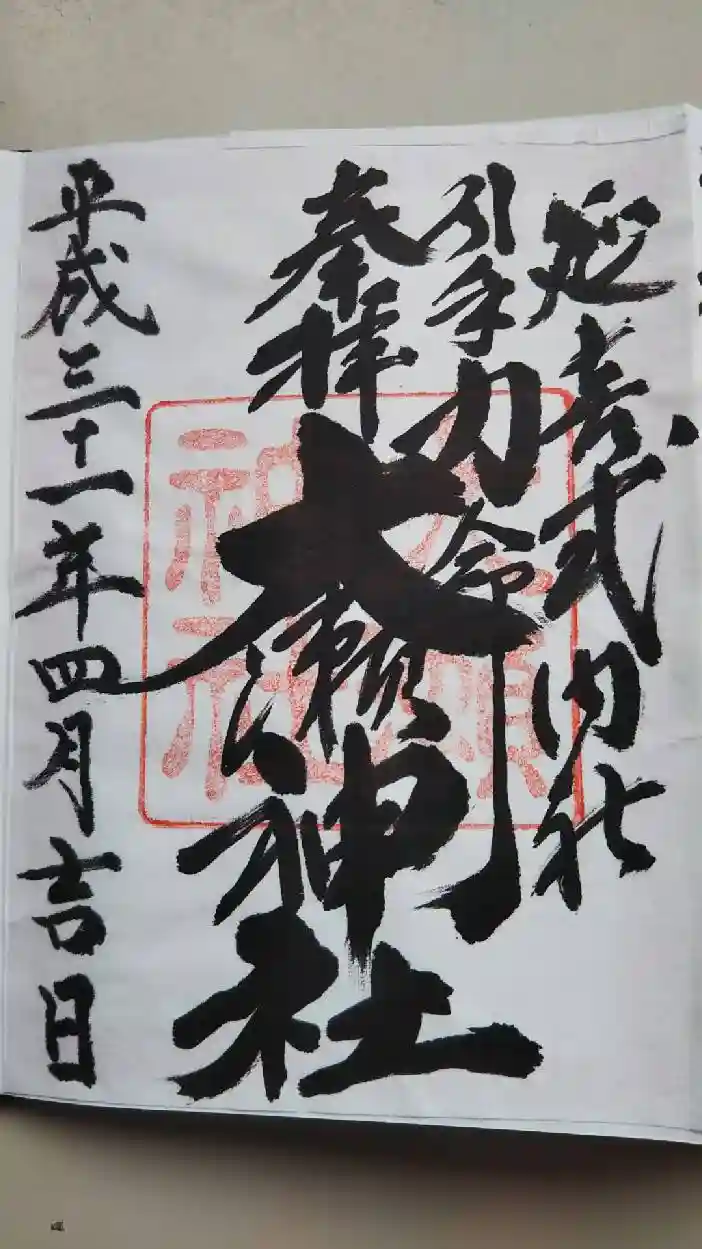 延喜式内社
引手力命
奉拝
大瀬神社
平成三十一年四月吉日
大瀬
神社